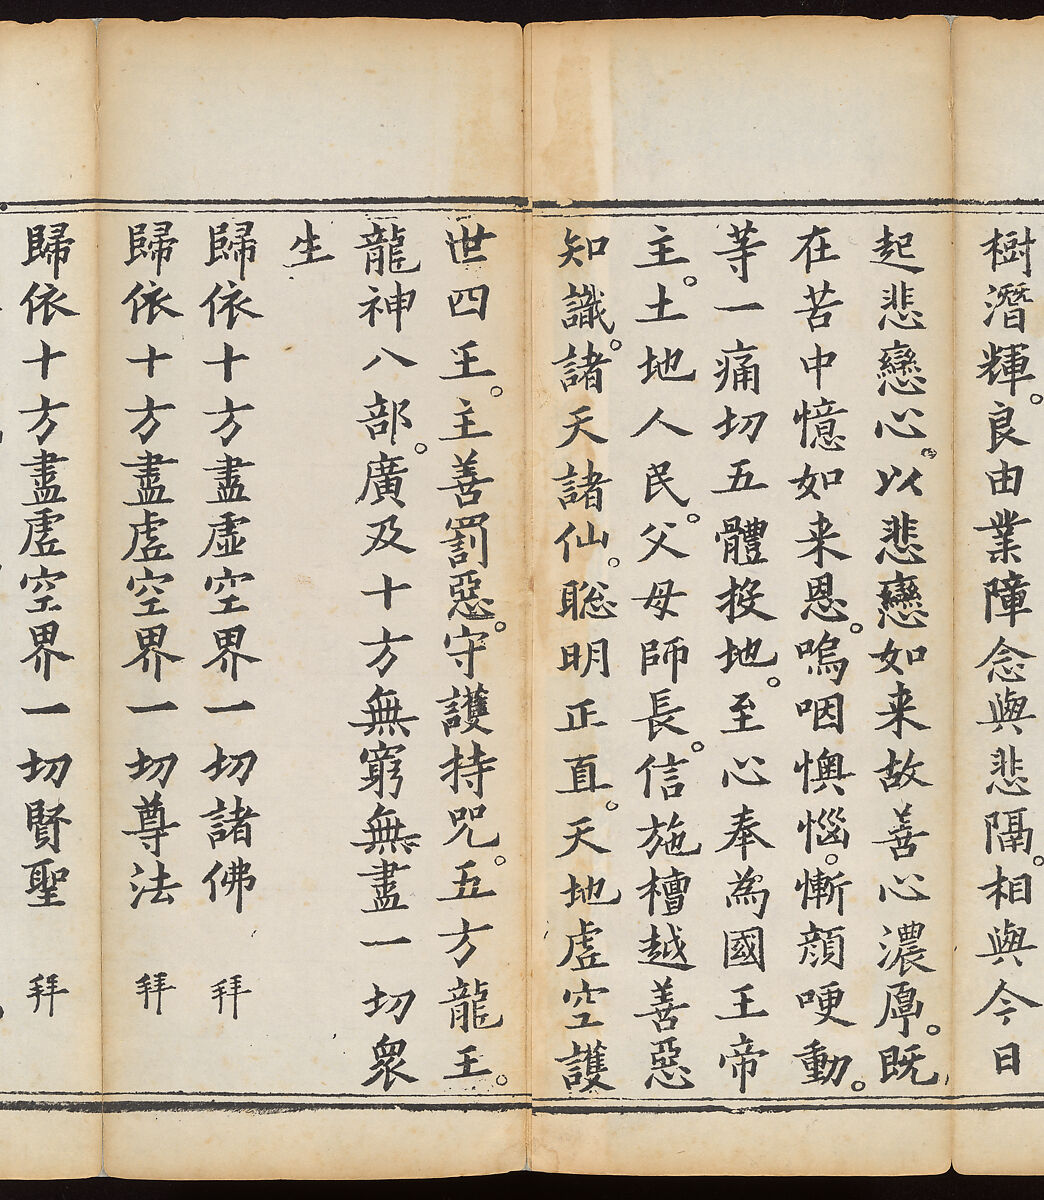 樹潛輝。良由業障念與悲隔。相與今日
起悲戀心。以悲戀如来故善心濃厚。既
在苦中憶如来恩。嗚咽懊惱。慚顔哽動。
等一痛切五體投地。至心奉為國王帝
主。土地人民。父母師長。信施檀越善惡
知識。諸天諸仙。聡明正直。天地虚空護
世四王。主善罰惡。守護持咒。五方龍王。
龍神八部。廣及十方無窮無盡一切衆
生
歸依十方盡虚空界一切諸佛 拜
歸依十方盡虚空界一切尊法 拜
歸依十方盡虚空界一切賢聖 拜